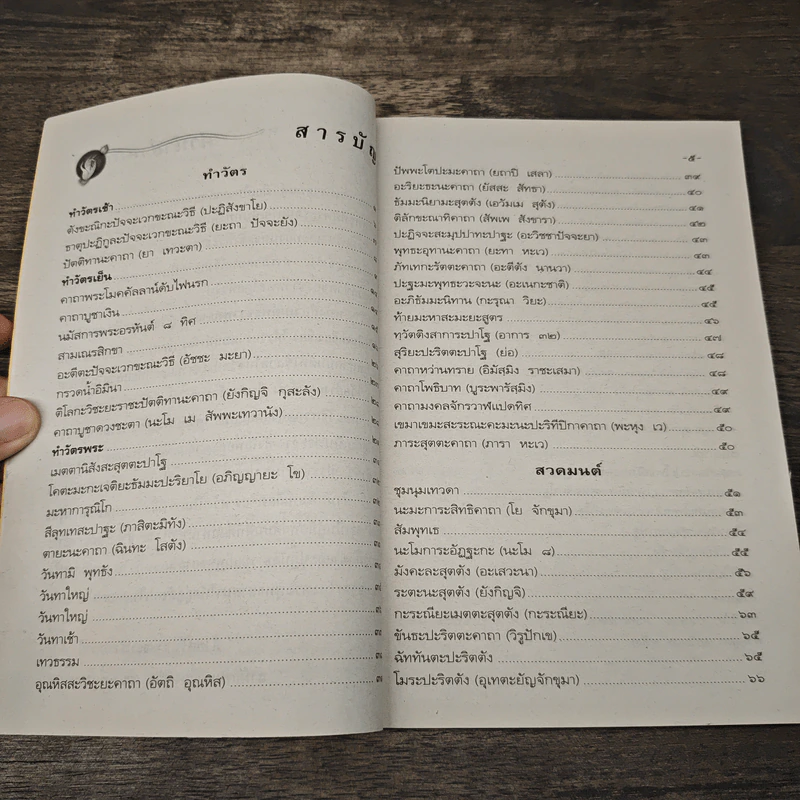 สารบัญ
ทำวัตร
ทำวัตรเช้า
ตังขะณิกะปัจจะเวกขะณะวิธี (ปะฏิสังขาโย)
ธาตุปะฏิกูละปัจจะเวกขะณะวิธี (ยะถา ปัจจะยัง)
ปัตติทานะคาถา (ยา เทวะตา)
ทำวัตรเย็น
คาถาพระโมคคัลลาน์ดับไฟนรก
คาถาบูชาเงิน
นมัสการพระอรหันต์ ๘ ทิศ
สามเณรสิกขา
อะตีตะปัจจะเวกขะณะวิธี (อัชชะ มะยา)
กรวดน้ำอิมินา
ติโลกะวิชะยะราชะปัตติทานะคาถา (ยังกิญจิ กุสะลัง)
คาถาบูชาดวงชะตา (นะโม เม สัพพะเทวานัง)
ทำวัตรพระ
เมตตานิสังสะสุตตะปาโฐ
โคตะมะกะเจติยะธัมมะปะริยาโย (อภิญญายะ โข)
มะหาการุณิโก
สีลุทเทสะปาฐะ (ภาสิตะมิทัง)
ตายะนะคาถา (ฉินทะ โสตัง)
วันทามิ พุทธัง
วันทาใหญ่
วันทาใหญ่
วันทาเช้า
เทวธรรม
อุณหิสสะวิชะยะคาถา (อัตถิ อุณหิส)
-๕-
ปัพพะโตปะมะคาถา (ยถาปิ เสลา) ๓๙
อะริยะธะนะคาถา (ยัสสะ สัทธา) ๔๐
ธัมมะนิยามะสุตตัง (เอวัมเม สุตัง) ๔๑
ติลักขะณาทิคาถา (สัพเพ สังขารา) ๔๒
ปะฏิจจะสะมุปปาทะปาฐะ (อะวิชชาปัจจะยา) ๔๓
พุทธะอุทานะคาถา (ยะทา หะเว) ๔๓
ภัทเทกะรัตตะคาถา (อะตีตัง นานวา) ๔๔
ปะฐะมะพุทธะวะจะนะ (อะเนกะชาติ) ๔๕
อะภิธัมมะนิทาน (กะรุณา วิยะ) ๔๕
ท้ายมะหาสะมะยะสูตร ๔๖
ทุวัตติงสาการะปาโฐ (อาการ ๓๒) ๔๗
สุริยะปะริตตะปาโฐ (ย่อ) ๔๘
คาถาหว่านทราย (อิมัสุมิง ราชะเสมา) ๔๘
คาถาโพธิบาท (บูระพารัสุมิง) ๔๙
คาถามงคลจักรวาฬแปดทิศ ๔๙
เขมาเขมะสะระณะคะมะนะปะริทีปิกาคาถา (พะหุง เว) ๕๐
ภาระสุตตะคาถา (ภารา หะเว) ๕๐
สวดมนต์
ชุมนุมเทวดา ๕๑
นะมะการะสิทธิคาถา (โย จักขุมา) ๕๓
สัมพุทเธ ๕๔
นะโมการะอัฏฐะกะ (นะโม ๘) ๕๕
มังคะละสุตตัง (อะเสวะนา) ๕๖
ระตะนะสุตตัง (ยังกิญจิ) ๕๙
กะระณียะเมตตะสุตตัง (กะระณียะ) ๖๓
ขันธะปะริตตะคาถา (วิรูปักเข) ๖๕
ฉัททันตะปะริตตัง ๖๕
โมระปะริตตัง (อุเทตะยัญจักขุมา) ๖๖